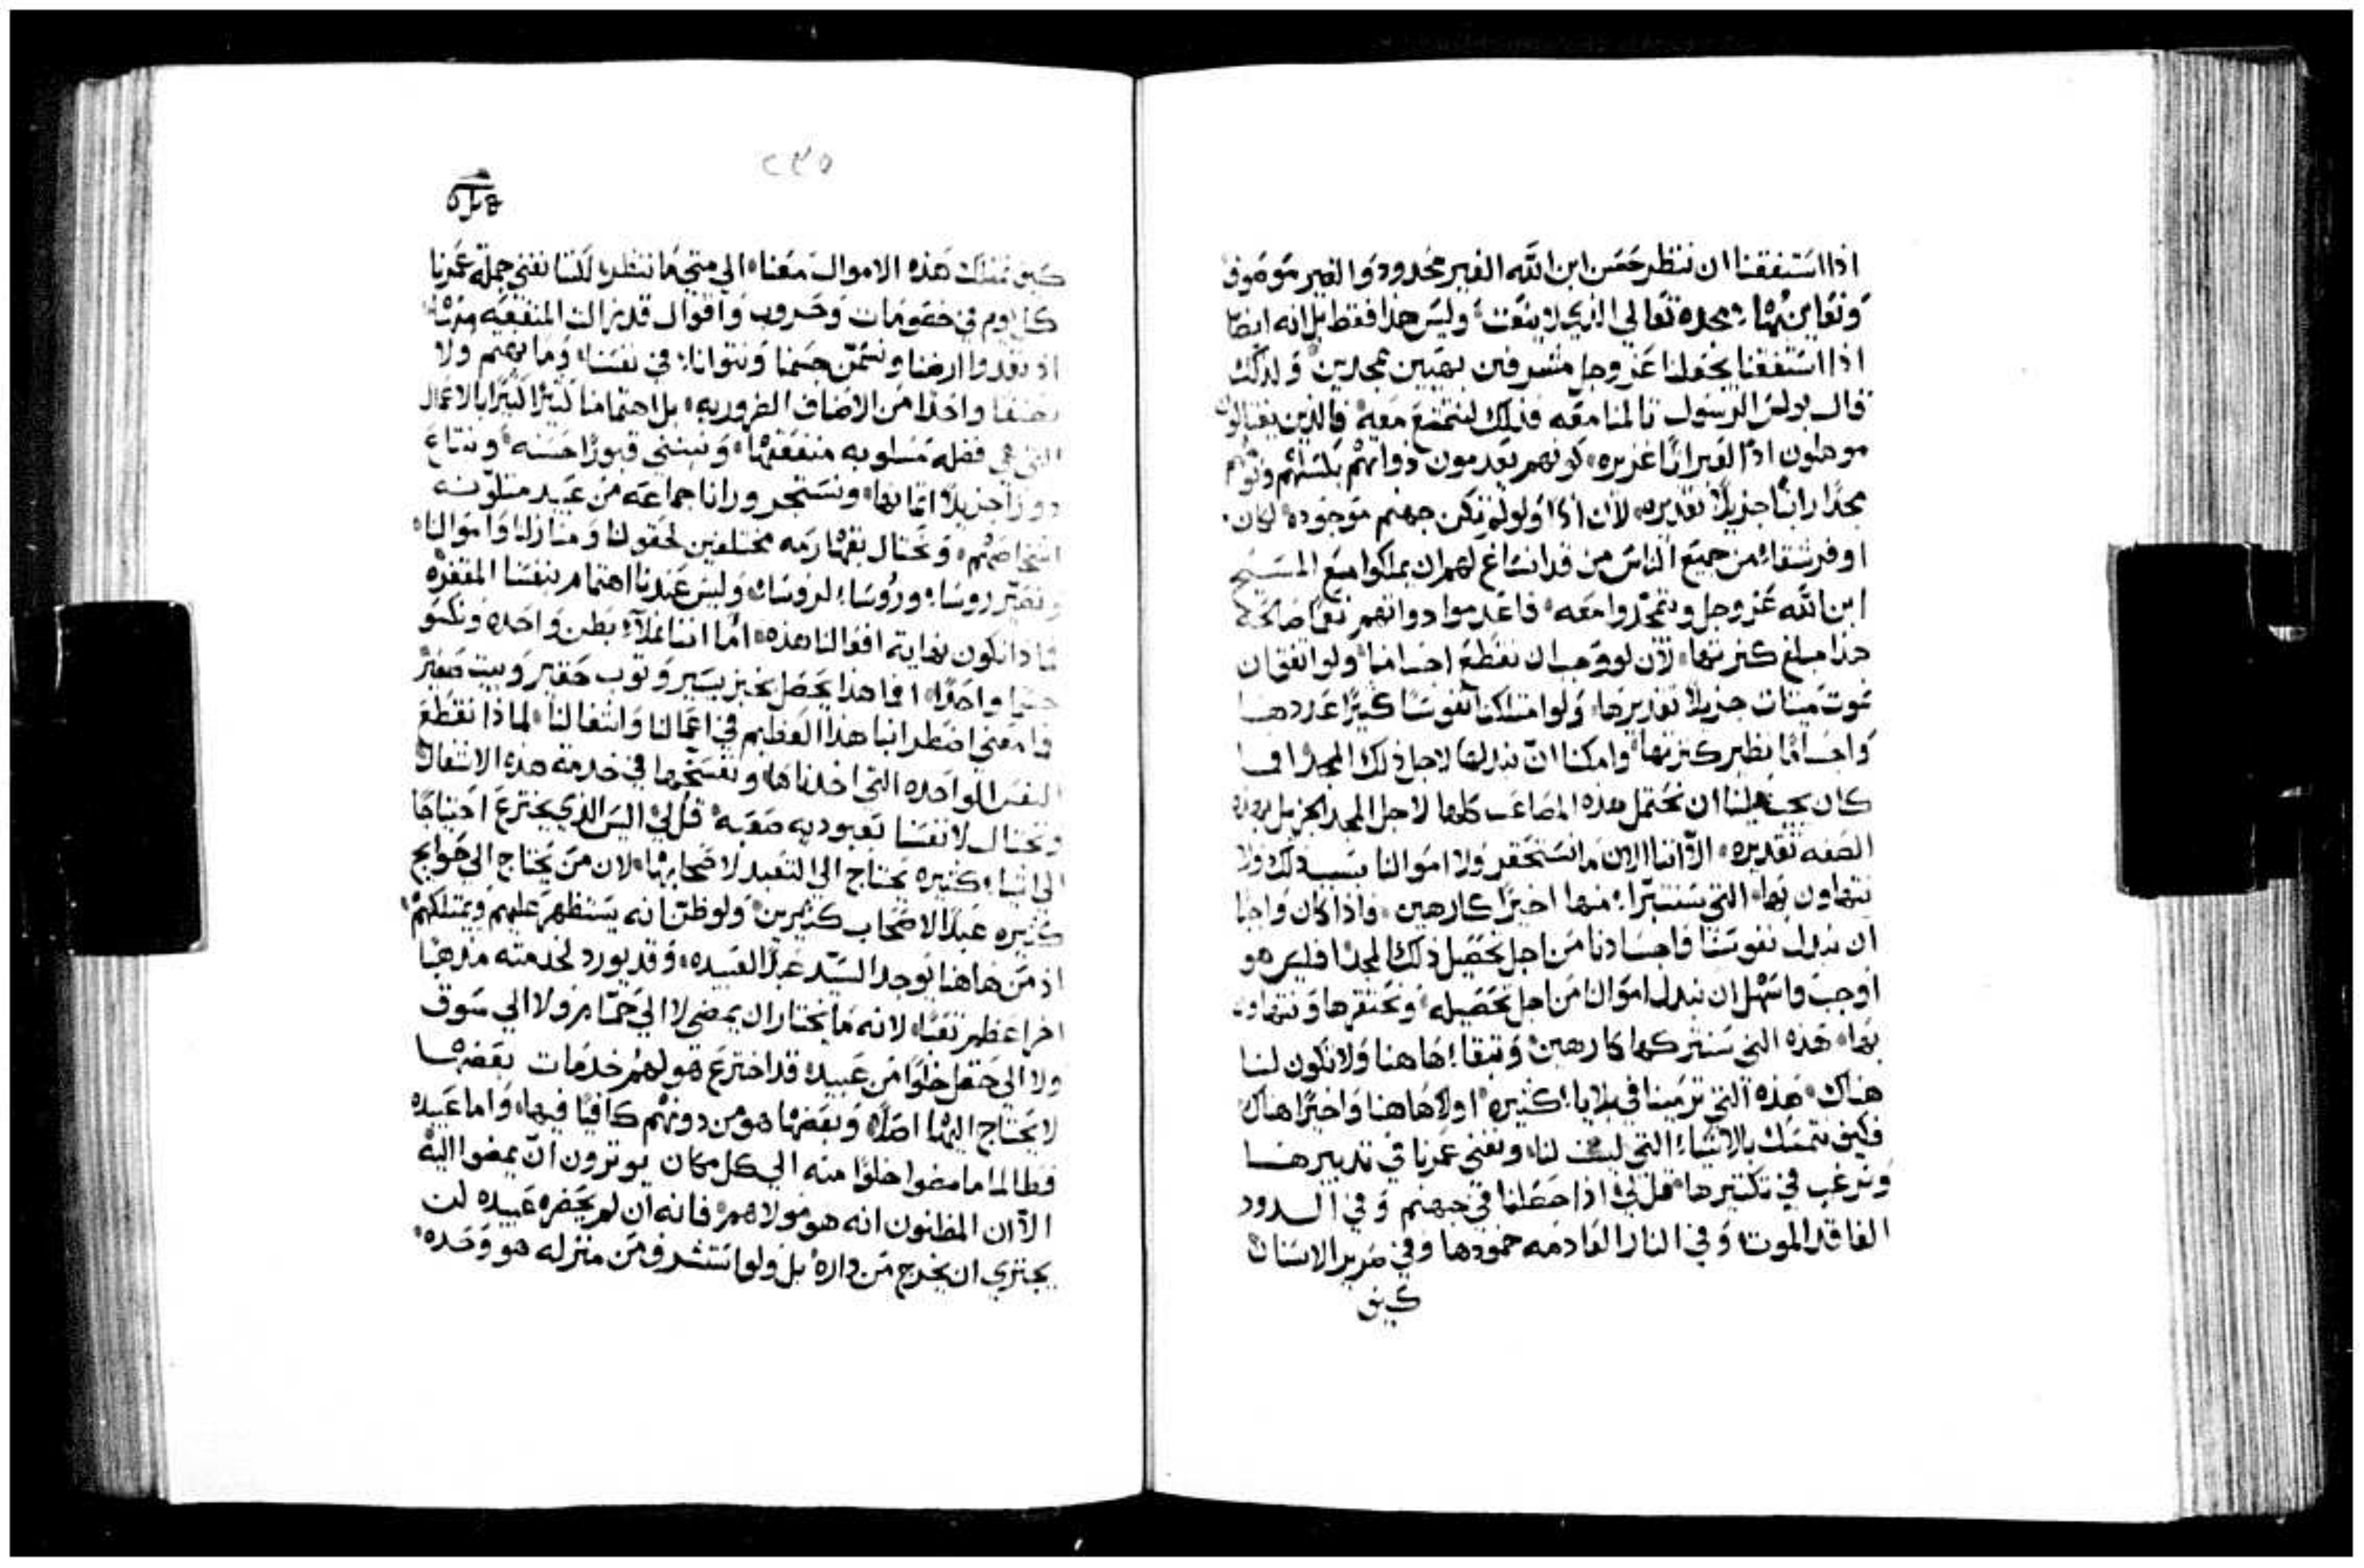 اذا استفقنا ان ننظر حسن ابن الله الغير محدود والغير موصوف
ونعاين بهاء مجده تعالي الذي لا ينعت وليس هذا فقط بل انه ايضا
اذا استفقنا يجعلنا عز وجل مشرفين بهيين ممجدين ولذلك
قال بولس الرسول تالمنا معه فذلك لنتمتع معه فالذين يغتالون
موهلون اذا لعبراتا غزيره كونهم يعدمون ذواتهم
مجدا راتبا جزيلا تقديره لان اذا ولو لم تكن جهنم موجوده لكان
اوفر شقاء من جميع الناس من قد انساغ لهم ان يملكوا مع المسيح
ابن الله عز وجل ويتمجدوا معه فاعدموا ذواتهم نعما صالحه
هذا مبلغ كثرتها لان لو وجب ان نقطع اجسامنا ولو اتفق ان
نموت ميتات جزيلا تقديرها ولو امتلكنا نفوسا كثيرا عددها
واجساما نظير كثرتها وامكنا ان نبذلها لاجل ذلك المجد افما
كان يجب علينا ان نحتمل هذه المصاعب كلها لاجل المجد الجزيل بهذه
الصفه تقديره الا اننا الان ما نستحقر ولا اموالنا بسبب ذلك ولا
نتهاون بها التي سنتبرا منها اخيرا كارهين واذا كان واجبا
ان نبذل نفوسنا واجسادنا من اجل تحصيل ذلك المجد افليس هو
اوجب واسهل ان نبذل اموالنا من اجل تحصيله ونحتقرها ونتهاون
بها هذه التي سنتركها كارهين وتبقا هاهنا ولا تكون لنا
هناك هذه التي ترمينا في بلايا كثيره اولا هاهنا واخيرا هناك
فكيف نتمسك بالاشياء التي ليست لنا ونفني عمرنا في تدبيرها
ونرغب في تكثيرها قل لي اذا حصلنا في جهنم وفي الدود
الفاقد الموت وفي النار العادمه خمودها وفي صرير الاسنان
كيف
٢٣٥
كيف نمتلك هذه الاموال معنا الي متي ما ننتظر لكننا نفني جملة عمرنا
كل يوم في خصومات وحروب واقوال قد زالت المنفعه منها
اذ نغدوا ارضنا ونسمن جسمنا ونتوانا في نفسنا وما نهتم ولا
نصنفا واحدا من الاصناف الضروريه بل اهتمامنا كثيرا كثيرا بالاعمال
التي هي فضله مسلوبه منفعتها ونبتني قبورا حسنه ونبتاع
دورا جزيلا اثمانها ونستجر ورانا جماعه من عبيد متلونه
اشخاصهم ونحتال بقهارمه مختلفين لحقولنا ومنازلنا واموالنا
ونصير روسا وروسا لروسا وليس عندنا اهتمام بنفسنا المقفره
ماذا تكون نهاية افعالنا هذه اما اننا نملا بطن واحده ونكسو
جسما واحدا افما هذا يحصل بخبز يسير وثوب حقير وبيت صغير
فما معني اضطرابنا هذا العظيم في اعمالنا واشغالنا لماذا نقطع
النفس الواحده التي اخذناها ونفسخها في خدمة هذه الاشغال
ونحتال لانفسنا بعبوديه صعبه قل لي اليس الذي يخترع احتياجا
الي اشياء كثيره يحتاج الي التعبد لاصحابها لان من يحتاج الي حوايج
كثيره عبدا لاصحاب كثيرين ولو ظن انه يستظهر عليهم ويمتلكهم
اذ من هاهنا يوجد السيد عبدا لعبيده وقد يورد لخدمته مذهبا
اخر اعظم تعبا لانه ما يختار ان يمضي لا الي حمام ولا الي سوق
ولا الي حقل خلوا من عبيده قد اخترع هو لهم خدمات بعضها
لا يحتاج اليها اصلا وبعضها هو من دونهم كافيا فيها واما عبيده
فطالما ما مضوا خلوا منه الي كل مكان يوثرون ان يمضوا اليه
الا ان المظنون انه هو مولاهم فانه ان لم يحضره عبيده لن
يجتري ان يخرج من داره بل ولو استشرف من منزله هو وحده